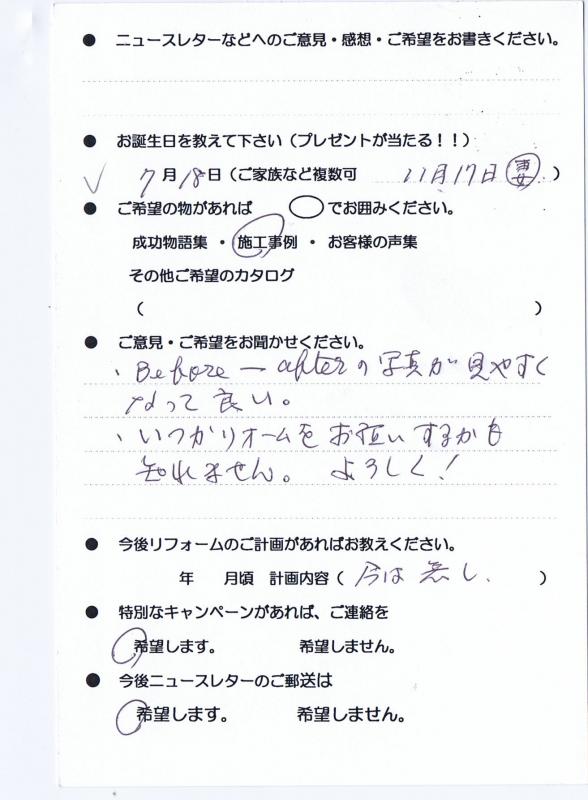 ● ニュースレターなどへのご意見・感想・ご希望をお書きください。
● お誕生日を教えて下さい（プレゼントが当たる！！）
✓ 7月18日（ご家族など複数可 11月17日 妻）
● ご希望の物があれば ◯でお囲みください。
成功物語集 ・ 施工事例 ・ お客様の声集
その他ご希望のカタログ
（ ）
● ご意見・ご希望をお聞かせください。
、Before—afterの写真が見やすく
なって良い。
、いつかリオームをお願いするかも
知れません。 よろしく！
● 今後リフォームのご計画があればお教えください。
年 月頃 計画内容（ 今は無し． ）
● 特別なキャンペーンがあれば、ご連絡を
希望します。 希望しません。
● 今後ニュースレターのご郵送は
希望します。 希望しません。